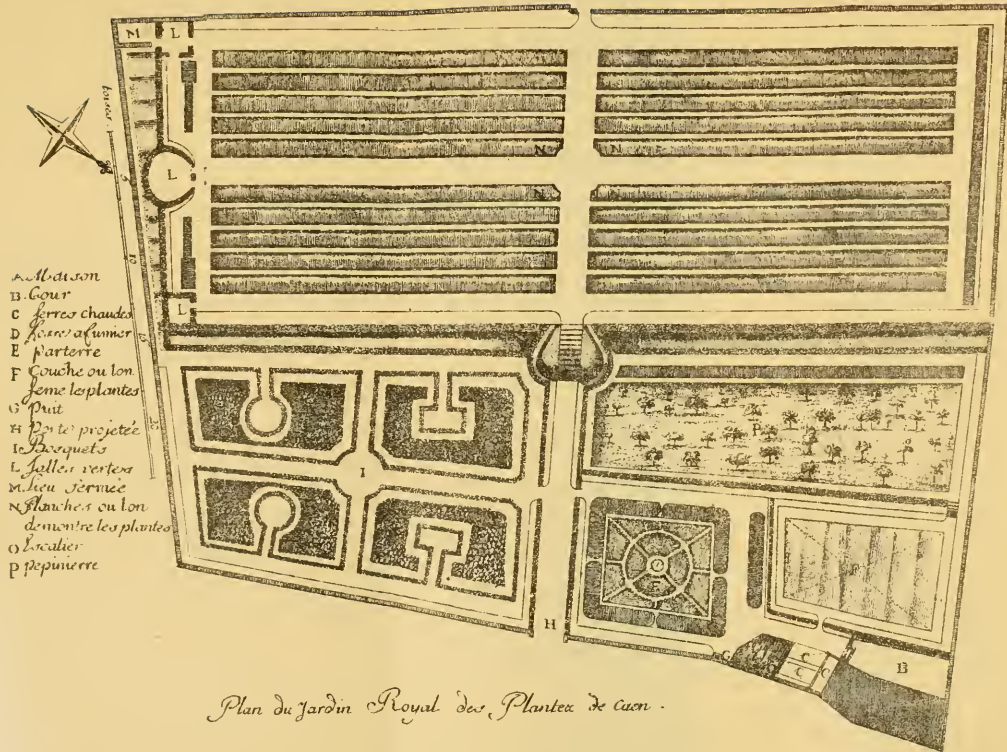 M L
N N
L
N N
L
toises
5
10
15
20
A Maison
B Cour
C Serres chaudes
D Fosses a fumier
E parterre
F Couche ou lon
seme les plantes
G Puit
H Porte projetée
I Bosquets
L Salles vertes
M lieu fermée
N Planches ou lon
demontre les plantes
O Escalier
P pepinierre
P
I
H
G
C
C
C
B
Plan du Jardin Royal des Plantes de Caen.